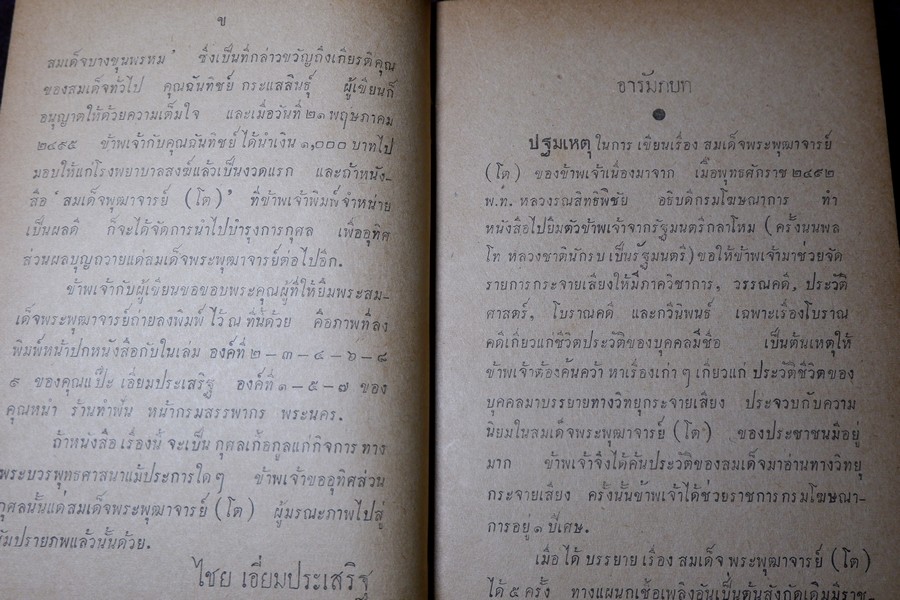 ข
สมเด็จบางขุนพรหม' ซึ่งเป็นที่กล่าวขวัญถึงเกียรติคุณ
ของสมเด็จทั่วไป คุณฉันทิชย์ กระแสสินธุ์ ผู้เขียนก็
อนุญาตให้ด้วยความเต็มใจ และเมื่อวันที่ ๒๑ พฤษภาคม
๒๔๙๕ ข้าพเจ้ากับคุณฉันทิชย์ ได้นำเงิน ๑,๐๐๐ บาทไป
มอบให้แก่โรงพยาบาลสงฆ์แล้วเป็นงวดแรก และถ้าหนัง-
สือ 'สมเด็จพุฒาจารย์ (โต)' ที่ข้าพเจ้าพิมพ์จำหน่าย
เป็นผลดี ก็จะได้จัดการนำไปบำรุงการกุศล เพื่ออุทิศ
ส่วนผลบุญถวายแด่สมเด็จพระพุฒาจารย์ต่อไปอีก.
ข้าพเจ้ากับผู้เขียนขอขอบพระคุณผู้ที่ให้ยืมพระสม-
เด็จพระพุฒาจารย์ถ่ายลงพิมพ์ ไว้ ณ ที่นี้ด้วย คือภาพที่ลง
พิมพ์หน้าปกหนังสือกับในเล่ม องค์ที่ ๒ – ๓ – ๔ – ๖ – ๘
๙ ของคุณแป๊ะ เอี่ยมประเสริฐ องค์ที่ ๑ – ๕ – ๗ ของ
คุณหนำ ร้านทำฟัน หน้ากรมสรรพากร พระนคร.
ถ้าหนังสือ เรื่องนี้ จะเป็น กุศลเกื้อกูลแก่กิจการ ทาง
พระบวรพุทธศาสนาแม้ประการใด ๆ ข้าพเจ้าขออุทิศส่วน
กุศลนั้นแด่สมเด็จพระพุฒาจารย์ (โต) ผู้มรณะภาพไปสู่
สัมปรายภพแล้วนั้นด้วย.
ไชย เอี่ยมประเสริฐ
อารัมภบท
ปฐมเหตุ ในการ เขียนเรื่อง สมเด็จพระพุฒาจารย์
(โต) ของข้าพเจ้าเนื่องมาจาก เมื่อพุทธศักราช ๒๔๙๒
พ.ท. หลวงรณสิทธิพิชัย อธิบดีกรมโฆษณาการ ทำ
หนังสือไปยืมตัวข้าพเจ้าจากรัฐมนตรีกลาโหม (ครั้งนั้นพล
โท หลวงชาตินักรบ เป็นรัฐมนตรี) ขอให้ข้าพเจ้ามาช่วยจัด
รายการกระจายเสียงให้มีภาควิชาการ, วรรณคดี, ประวัติ
ศาสตร์, โบราณคดี และกวีนิพนธ์ เฉพาะเรื่องโบราณ
คดีเกี่ยวแก่ชีวิตประวัติของบุคคลมีชื่อ เป็นต้นเหตุให้
ข้าพเจ้าต้องค้นคว้า หาเรื่องเก่า ๆ เกี่ยวแก่ ประวัติชีวิตของ
บุคคลมาบรรยายทางวิทยุกระจายเสียง ประจวบกับความ
นิยมในสมเด็จพระพุฒาจารย์ (โต) ของประชาชนมีอยู่
มาก ข้าพเจ้าจึงได้ค้นประวัติของสมเด็จมาอ่านทางวิทยุ
กระจายเสียง ครั้งนั้นข้าพเจ้าได้ช่วยราชการกรมโฆษณา-
การอยู่ ๑ ปีเศษ.
เมื่อ ได้ บรรยาย เรื่อง สมเด็จ พระพุฒาจารย์ (โต)
ได้ ๕ ครั้ง ทางแผนกเชื้อเพลิงอันเป็นต้นสังกัดเดิมมีราช-